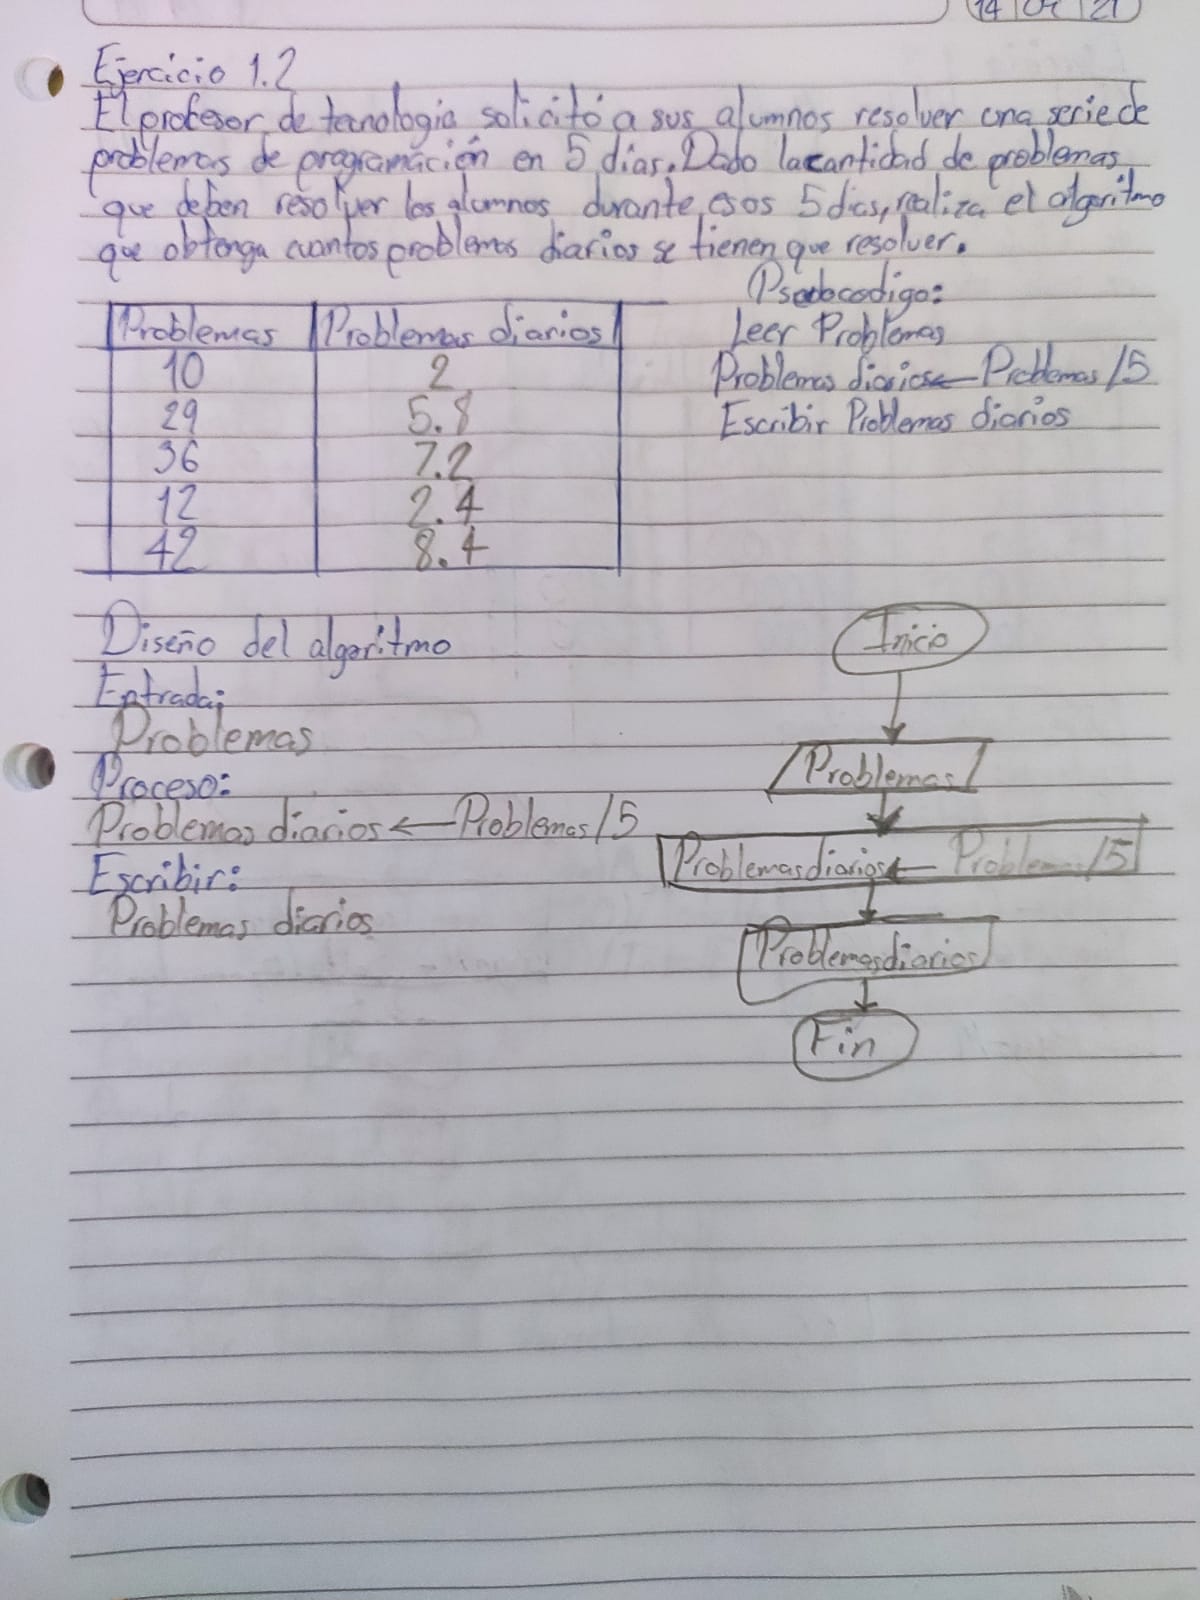 14 04 21
Ejercicio 1.2
El profesor de tecnologia solicitó a sus alumnos resolver una serie de
problemas de programación en 5 dias. Dado la cantidad de problemas
que deben resolver los alumnos durante esos 5 dias, realiza el algoritmo
que obtenga cuantos problemas diarios se tienen que resolver.
Problemas Problemas diarios
10 2
29 5.8
36 7.2
12 2.4
42 8.4
Pseudocodigo:
Leer Problemas
Problemas diarios ← Problemas /5
Escribir Problemas diarios
Diseño del algoritmo
Entrada:
Problemas
Proceso:
Problemas diarios ← Problemas /5
Escribir:
Problemas diarios
Inicio
Problemas
Problemas diarios ← Problemas /5
Problemas diarios
Fin